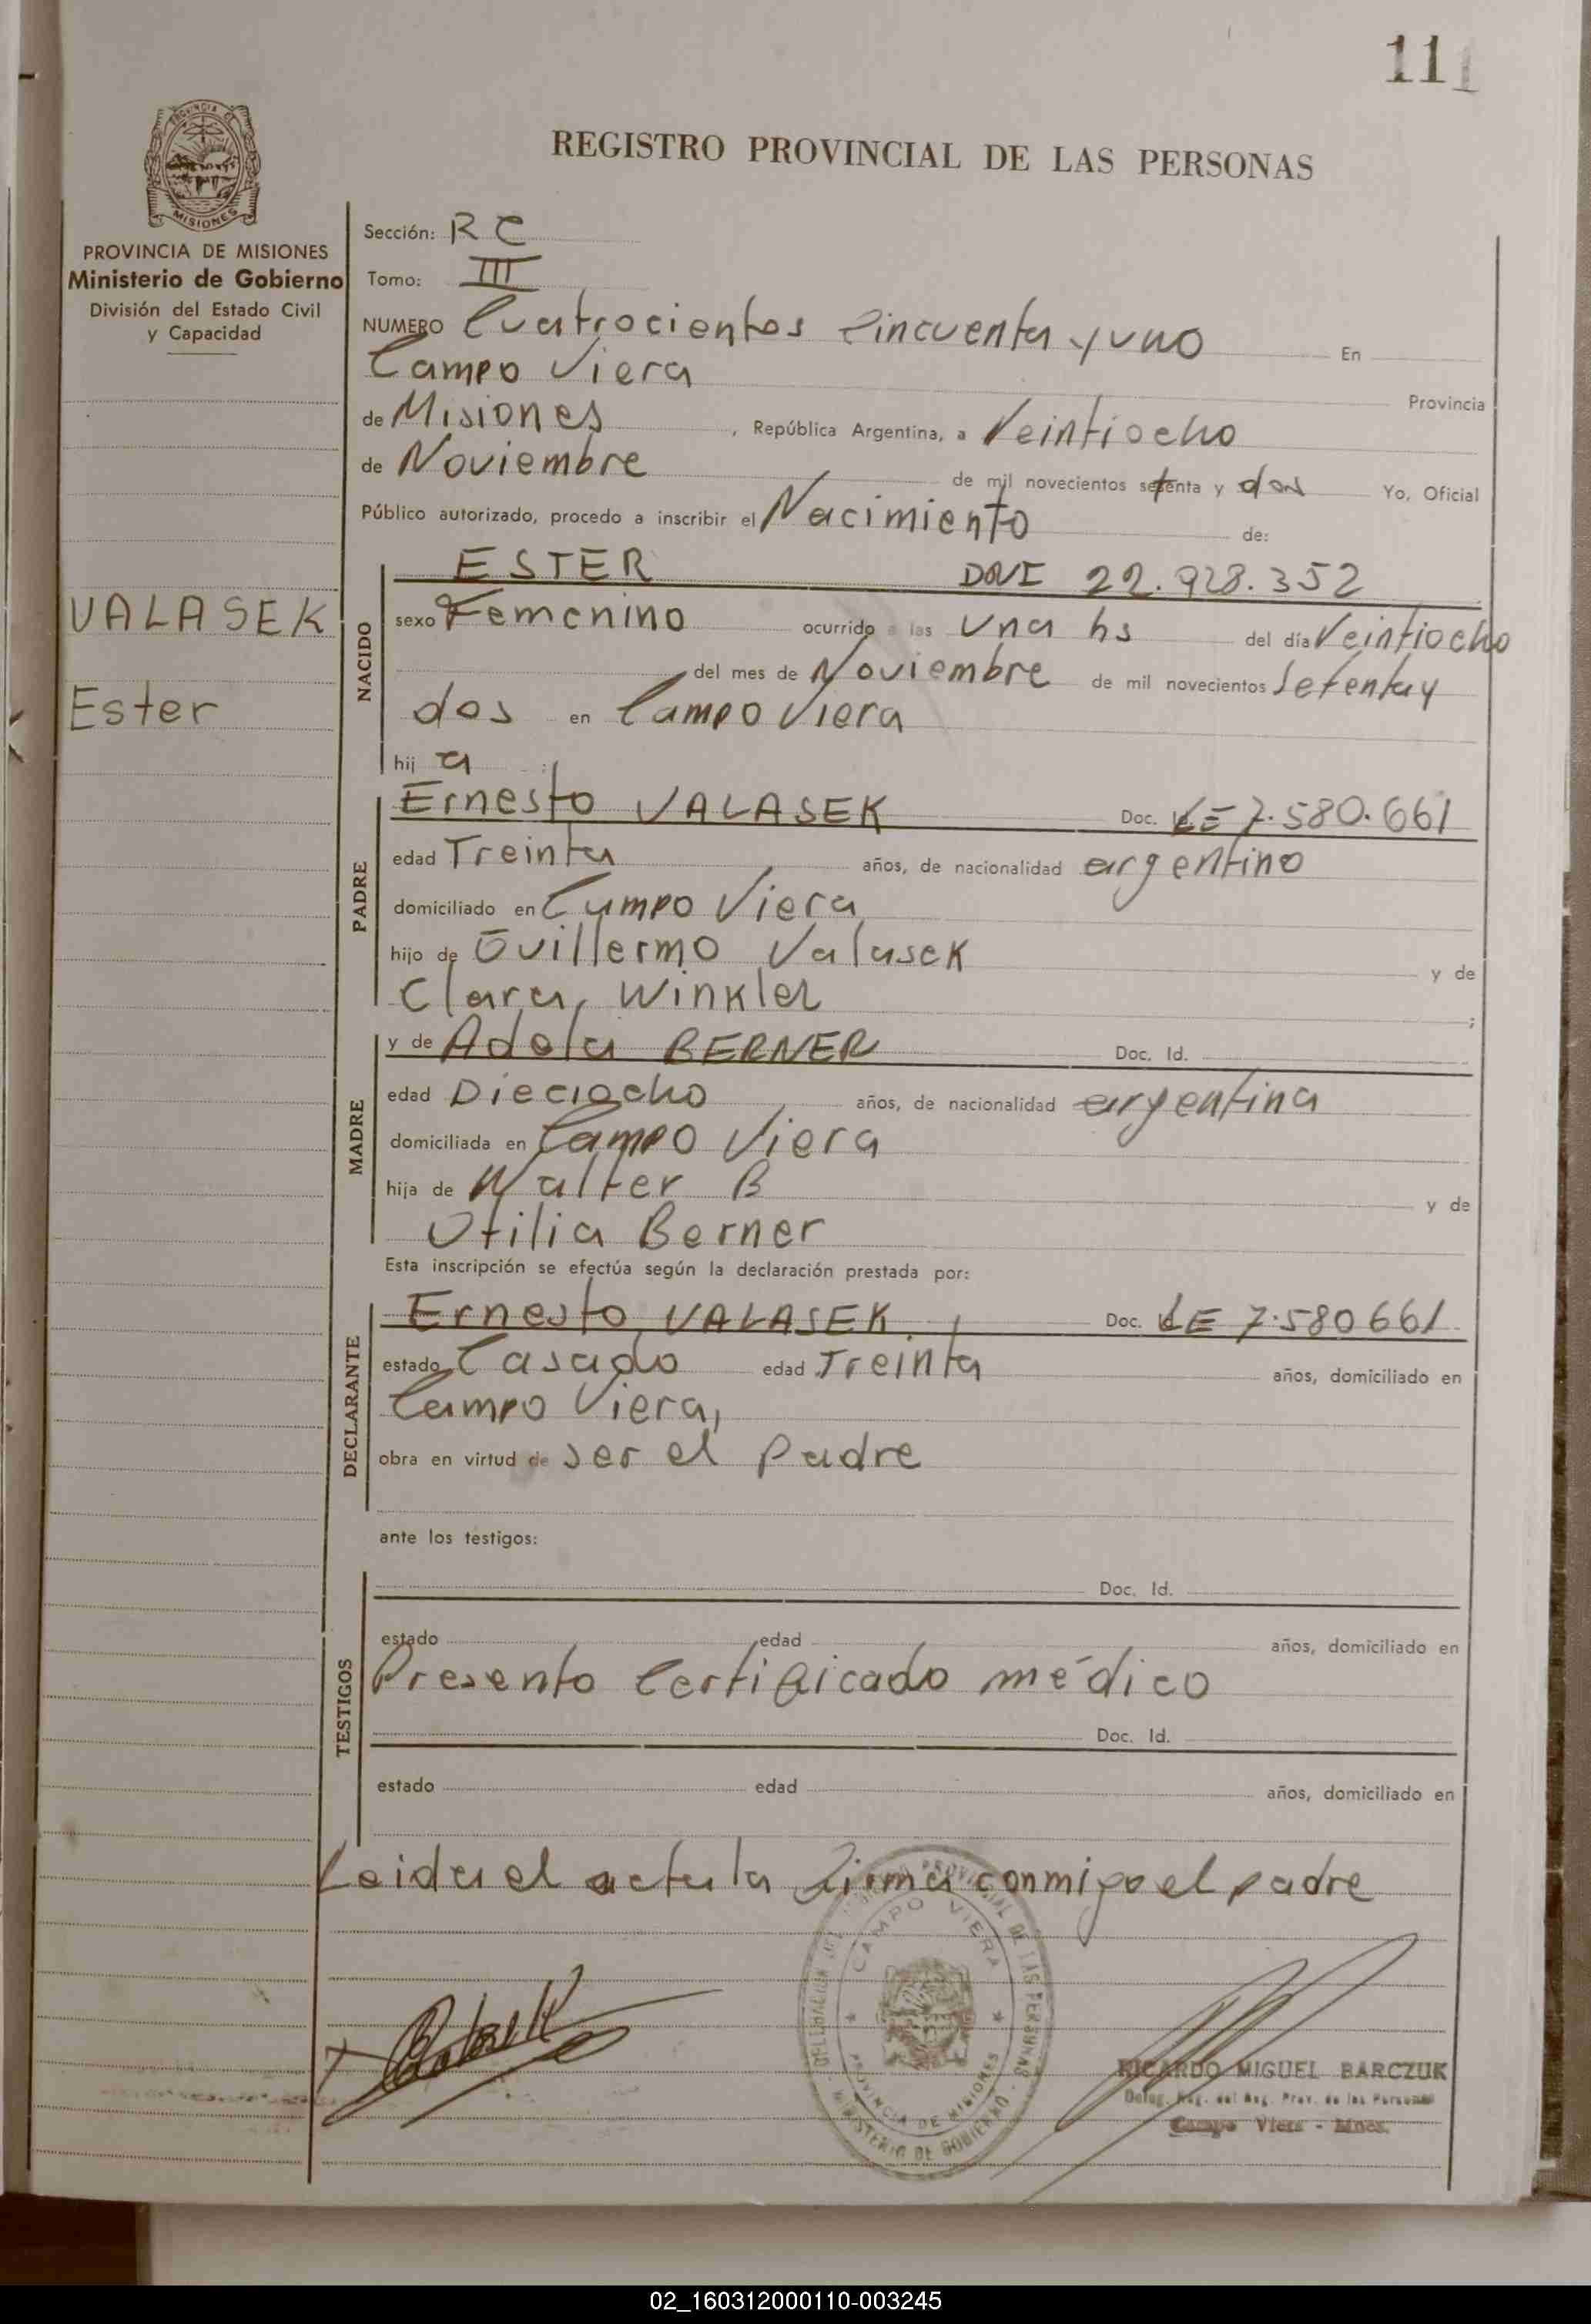 111
REGISTRO PROVINCIAL DE LAS PERSONAS
PROVINCIA DE MISIONES
Ministerio de Gobierno
División del Estado Civil
y Capacidad
VALASEK
Ester
Sección: RC
Tomo: III
NUMERO Cuatrocientos cincuenta y uno En
Campo Viera Provincia
de Misiones, República Argentina, a Veintiocho
de Noviembre de mil novecientos setenta y dos Yo, Oficial
Público autorizado, procedo a inscribir el Nacimiento de:
NACIDO
ESTER DNI 22.928.352
sexo Femenino ocurrido a las una hs del día Veintiocho
del mes de Noviembre de mil novecientos Setenta y
dos en Campo Viera
hij a :
PADRE
Ernesto VALASEK Doc. LE 7.580.661
edad Treinta años, de nacionalidad argentino
domiciliado en Campo Viera
hijo de Guillermo Valasek y de
Clara Winkler ;
MADRE
y de Adela BERNER Doc. Id.
edad Dieciocho años, de nacionalidad argentina
domiciliada en Campo Viera
hija de Walter B y de
Otilia Berner
Esta inscripción se efectúa según la declaración prestada por:
DECLARANTE
Ernesto VALASEK Doc. LE 7.580661
estado Casado edad Treinta años, domiciliado en
Campo Viera,
obra en virtud de ser el padre
ante los testigos:
TESTIGOS
Doc. Id.
estado edad años, domiciliado en
Presento Certificado médico
Doc. Id.
estado edad años, domiciliado en
Leida el acta la firma conmigo el padre
DELEGACION DEL REGISTRO PROVINCIAL DE LAS PERSONAS
CAMPO VIERA
PROVINCIA DE MISIONES
MINISTERIO DE GOBIERNO
RICARDO MIGUEL BARCZUK
Deleg. del Reg. Prov. de las Personas
Campo Viera - Mnes.
PROVINCIA DE
MISIONES
02_160312000110-003245